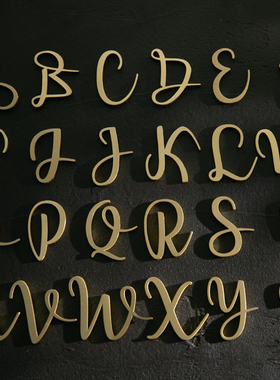 B C D E
I J K L
P Q R S
V W X Y